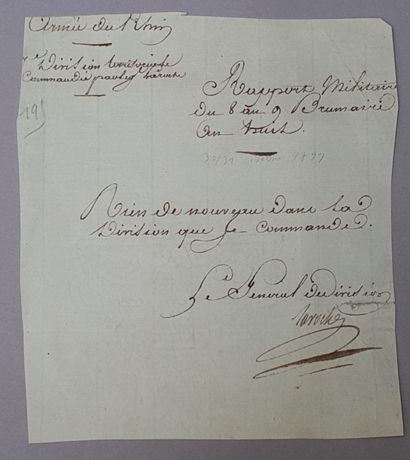 Armée du Rhin
Division territoriale
Commandée par le Gal Laroche
19)
Rapport Militaire
du 8 au 9 Brumaire
an huit.
30/31 octobre 1799
Rien de nouveau dans la
Division que je commande.
Le Général de Division
Laroche